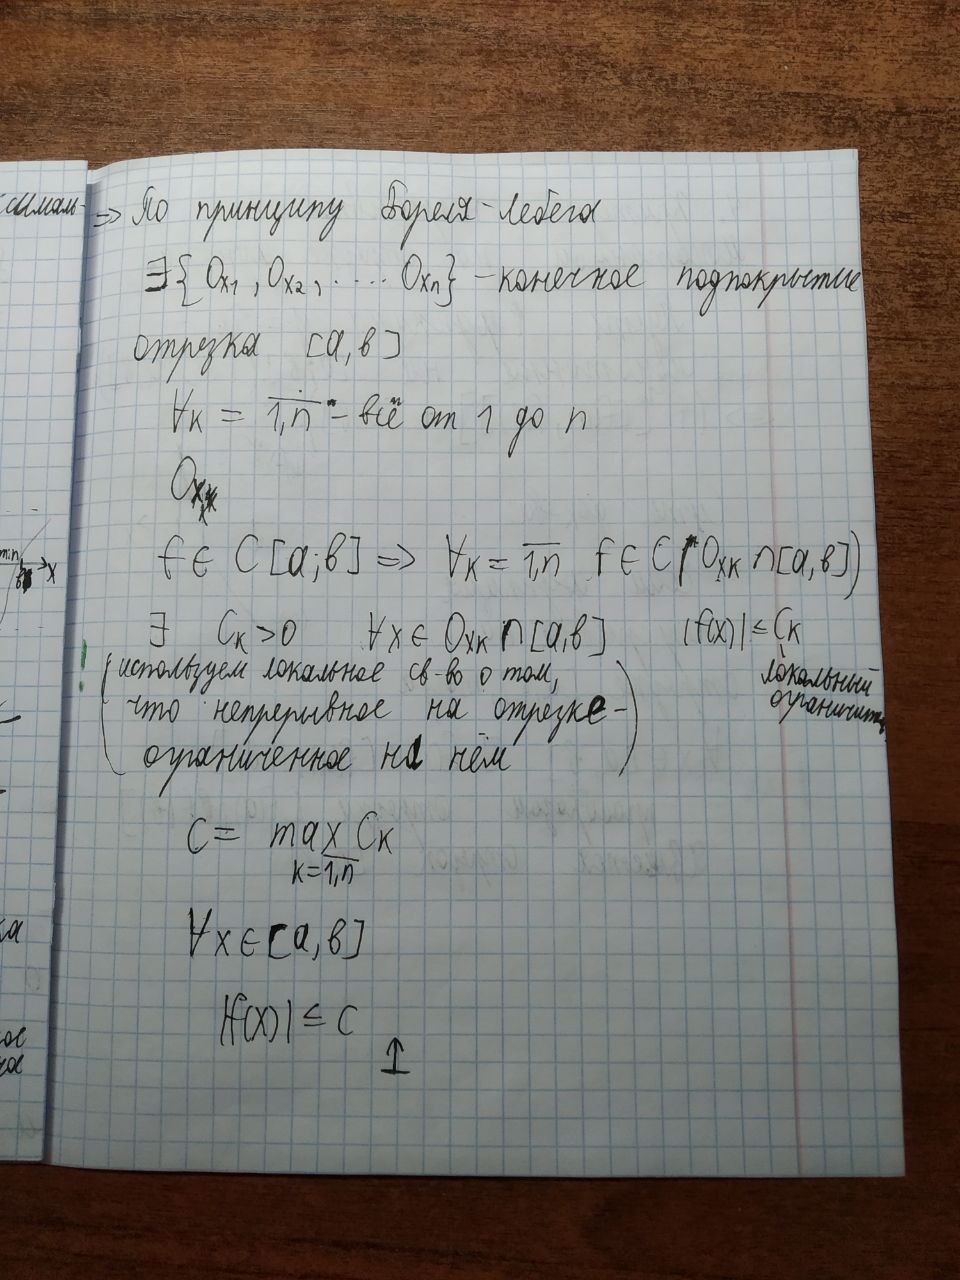 => По принципу Бореля-Лебега
∃{Ox₁, Ox₂, .... Oxₙ} - конечное подпокрытие
отрезка [a,b]
∀k = 1,n "- всё" от 1 до n
Oxₖ
f ∈ C[a;b] => ∀k = 1,n f ∈ C(Oxₖ ∩ [a,b])
∃ Cₖ>0 ∀x ∈ Oxₖ ∩ [a,b] |f(x)| ≤ Cₖ
локальный
(используем локальное св-во о том,
что непрерывное на отрезке-
ограниченное на нём)
C = max Cₖ
k=1,n
∀x ∈ [a,b]
|f(x)| ≤ C